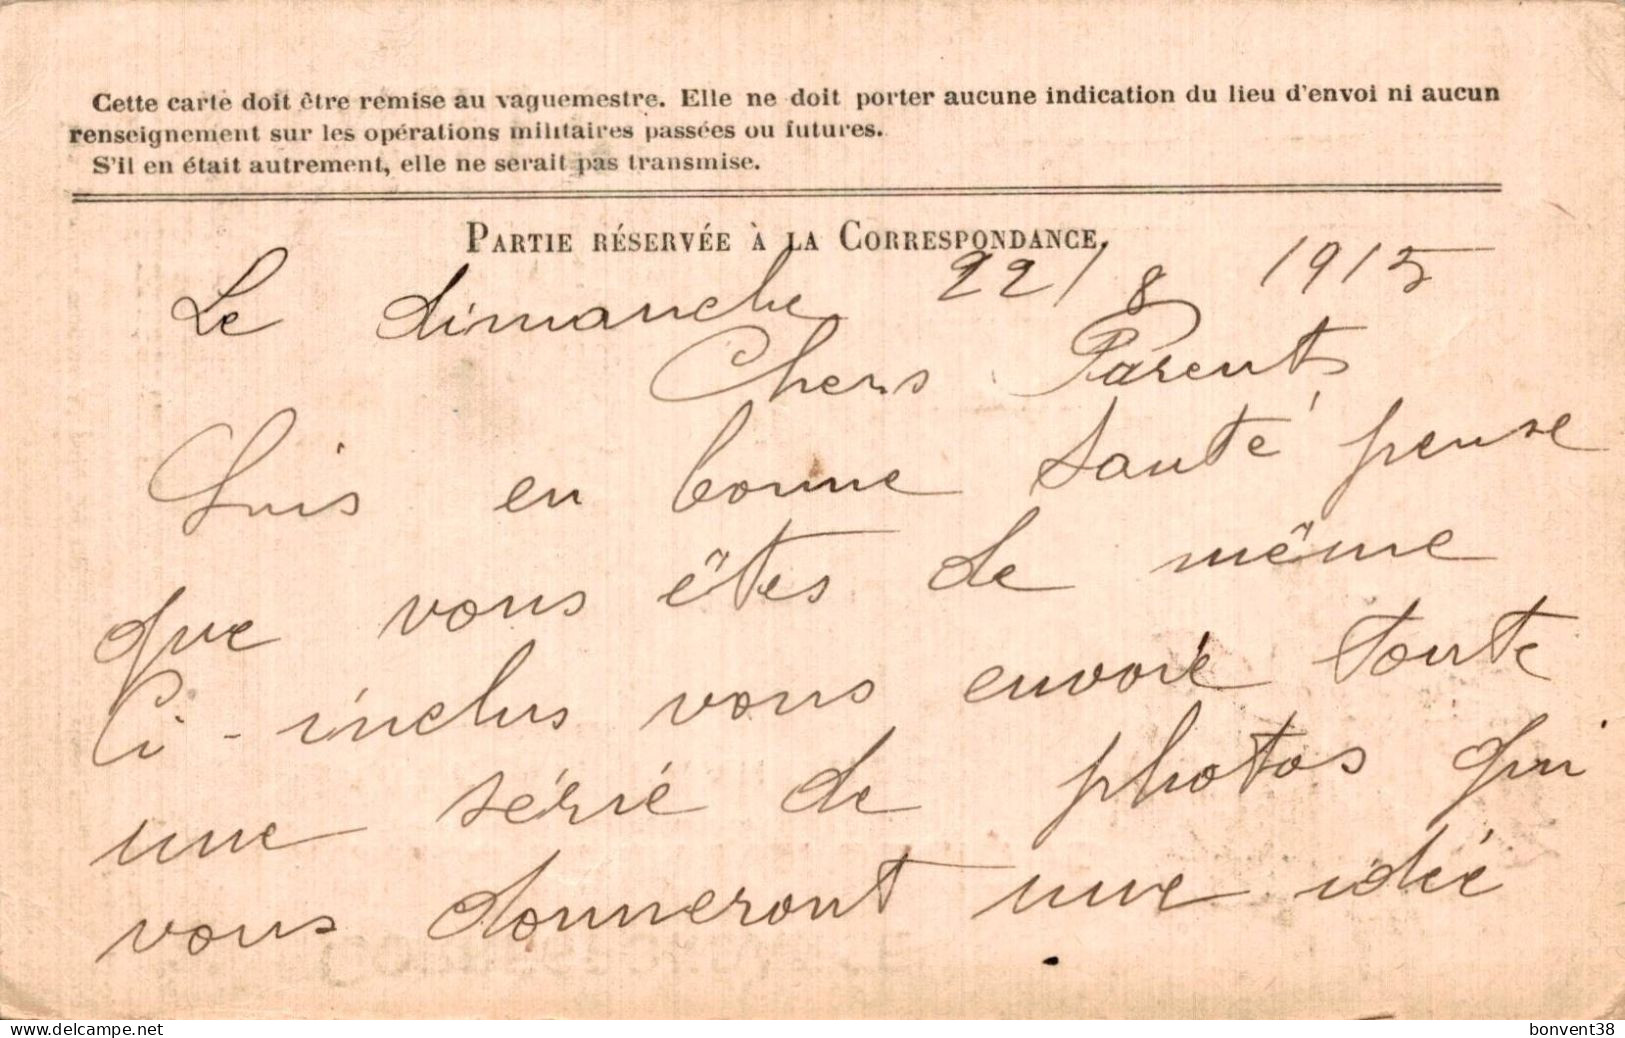 Cette carte doit être remise au vaguemestre. Elle ne doit porter aucune indication du lieu d'envoi ni aucun
renseignement sur les opérations militaires passées ou futures.
S'il en était autrement, elle ne serait pas transmise.
PARTIE RÉSERVÉE À LA CORRESPONDANCE.
Le dimanche 22/8 1915
Chers Parents
Suis en bonne santé, pense
que vous êtes de même
Ci-inclus vous envoie toute
une série de photos qui
vous donneront une idée
www.delcampe.net
bonvent38